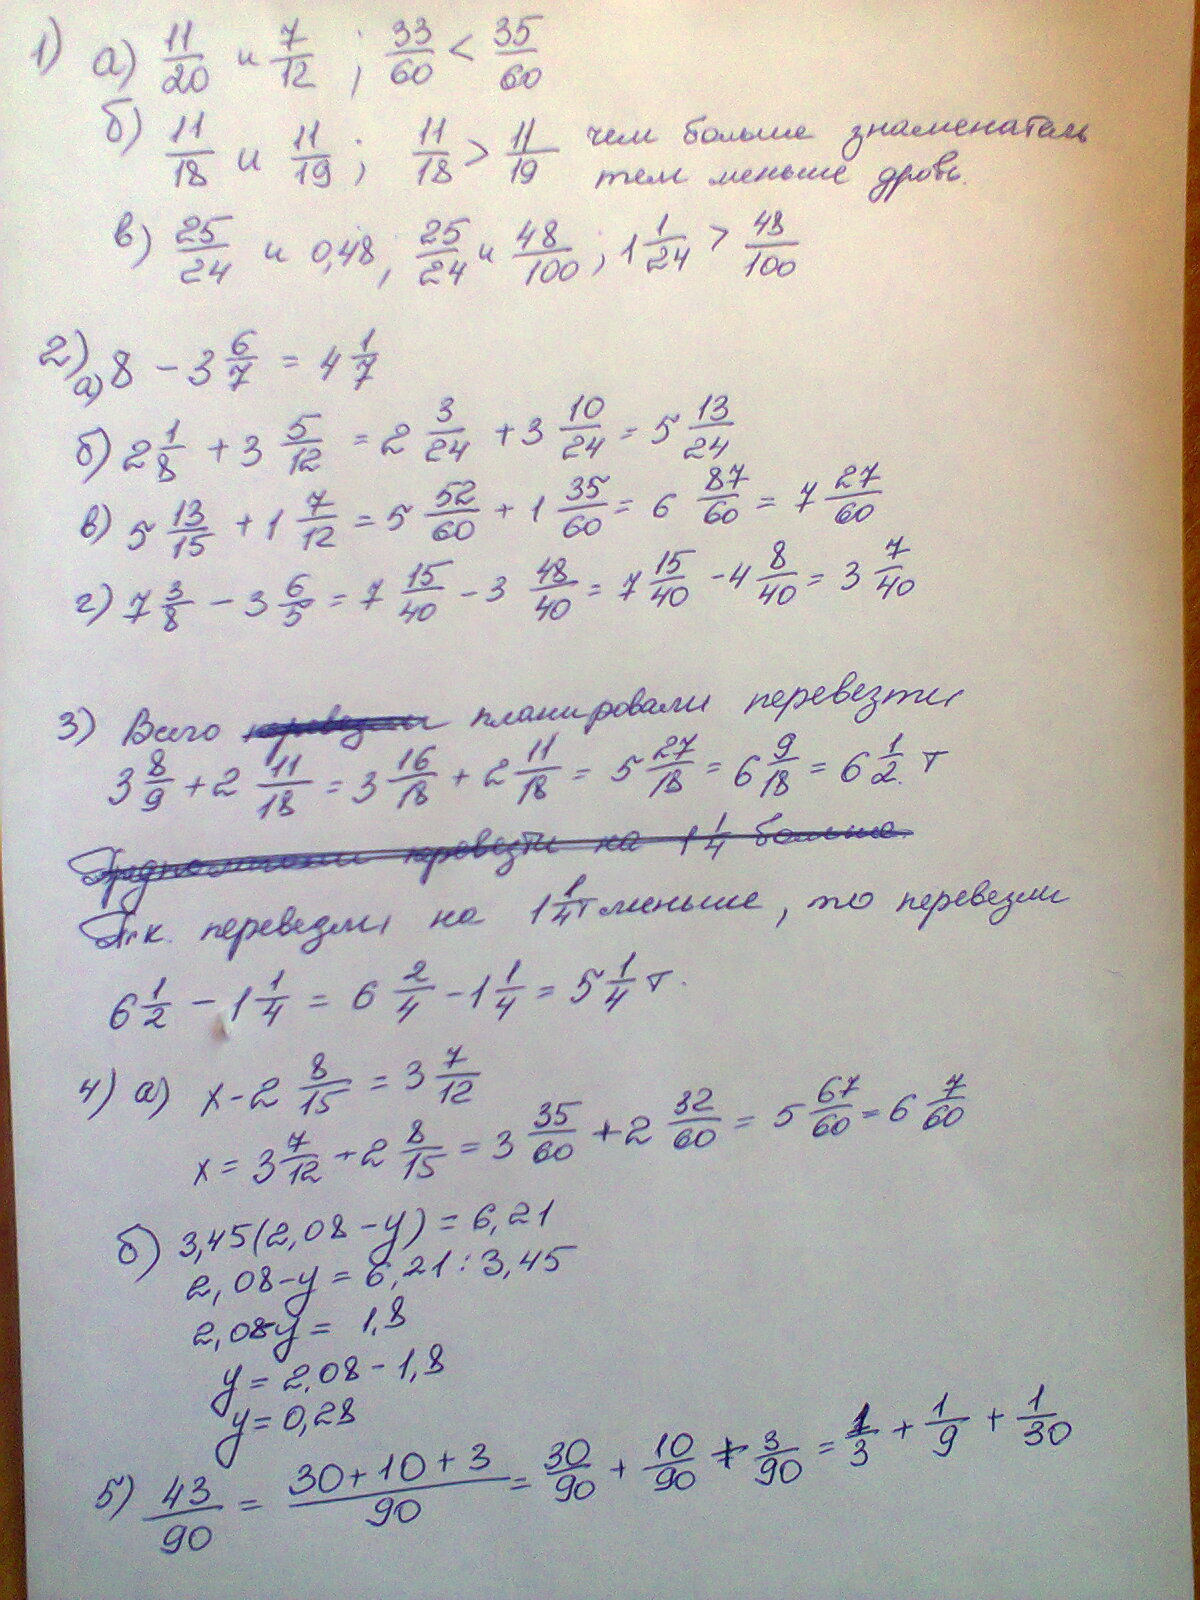 1) а) 11/20 и 7/12 ; 33/60 < 35/60
б) 11/18 и 11/19 ; 11/18 > 11/19 чем больше знаменатель
тем меньше дробь.
в) 25/24 и 0,48 ; 25/24 и 48/100 ; 1 1/24 > 48/100
2) а) 8 - 3 6/7 = 4 1/7
б) 2 1/8 + 3 5/12 = 2 3/24 + 3 10/24 = 5 13/24
в) 5 13/15 + 1 7/12 = 5 52/60 + 1 35/60 = 6 87/60 = 7 27/60
г) 7 3/8 - 3 6/5 = 7 15/40 - 3 48/40 = 7 15/40 - 4 8/40 = 3 7/40
3) Всего перевезли планировали перевезти
3 8/9 + 2 11/18 = 3 16/18 + 2 11/18 = 5 27/18 = 6 9/18 = 6 1/2 т
перевезти на 1 1/4 больше
Т.к. перевезли на 1 1/4 т меньше, то перевезли
6 1/2 - 1 1/4 = 6 2/4 - 1 1/4 = 5 1/4 т.
4) а) x - 2 8/15 = 3 7/12
x = 3 7/12 + 2 8/15 = 3 35/60 + 2 32/60 = 5 67/60 = 6 7/60
б) 3,45(2,08-y) = 6,21
2,08-y = 6,21 : 3,45
2,08-y = 1,8
y = 2,08 - 1,8
y = 0,28
5) 43/90 = (30+10+3)/90 = 30/90 + 10/90 + 3/90 = 1/3 + 1/9 + 1/30